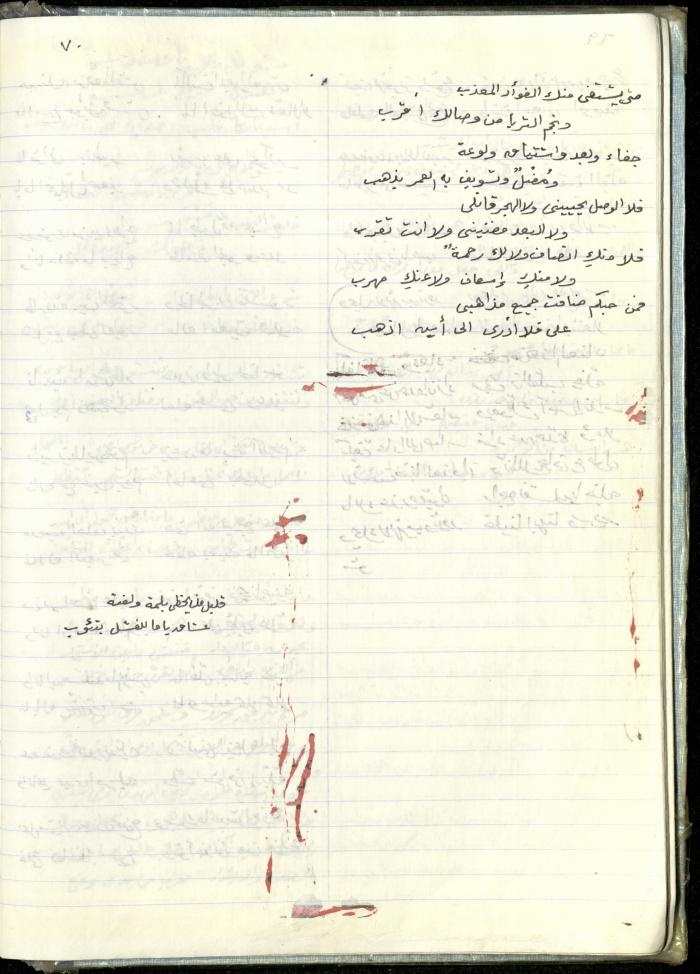 ٧٠
متى يشتفى منك الفؤاد المعذب
ونجم الثريا من وصالك أغرب
جفاء وبعد واشتياق ولوعة
ومُطْلٌ وتسويف به العمر يذهب
فلا الوصل يحيينى ولا الهجر قاتلى
ولا البعد مضنينى ولا انت تقرب
فلا منكِ انصاف ولا لك رحمة
ولا منكِ إسعاف ولا عنك مهرب
فمن حبكم ضاقت جميع مذاهبى
على فلا أدرى الى أين اذهب
قليل من يحظى بلمة ولفتة
عشاق ياما للفشل بتئوب